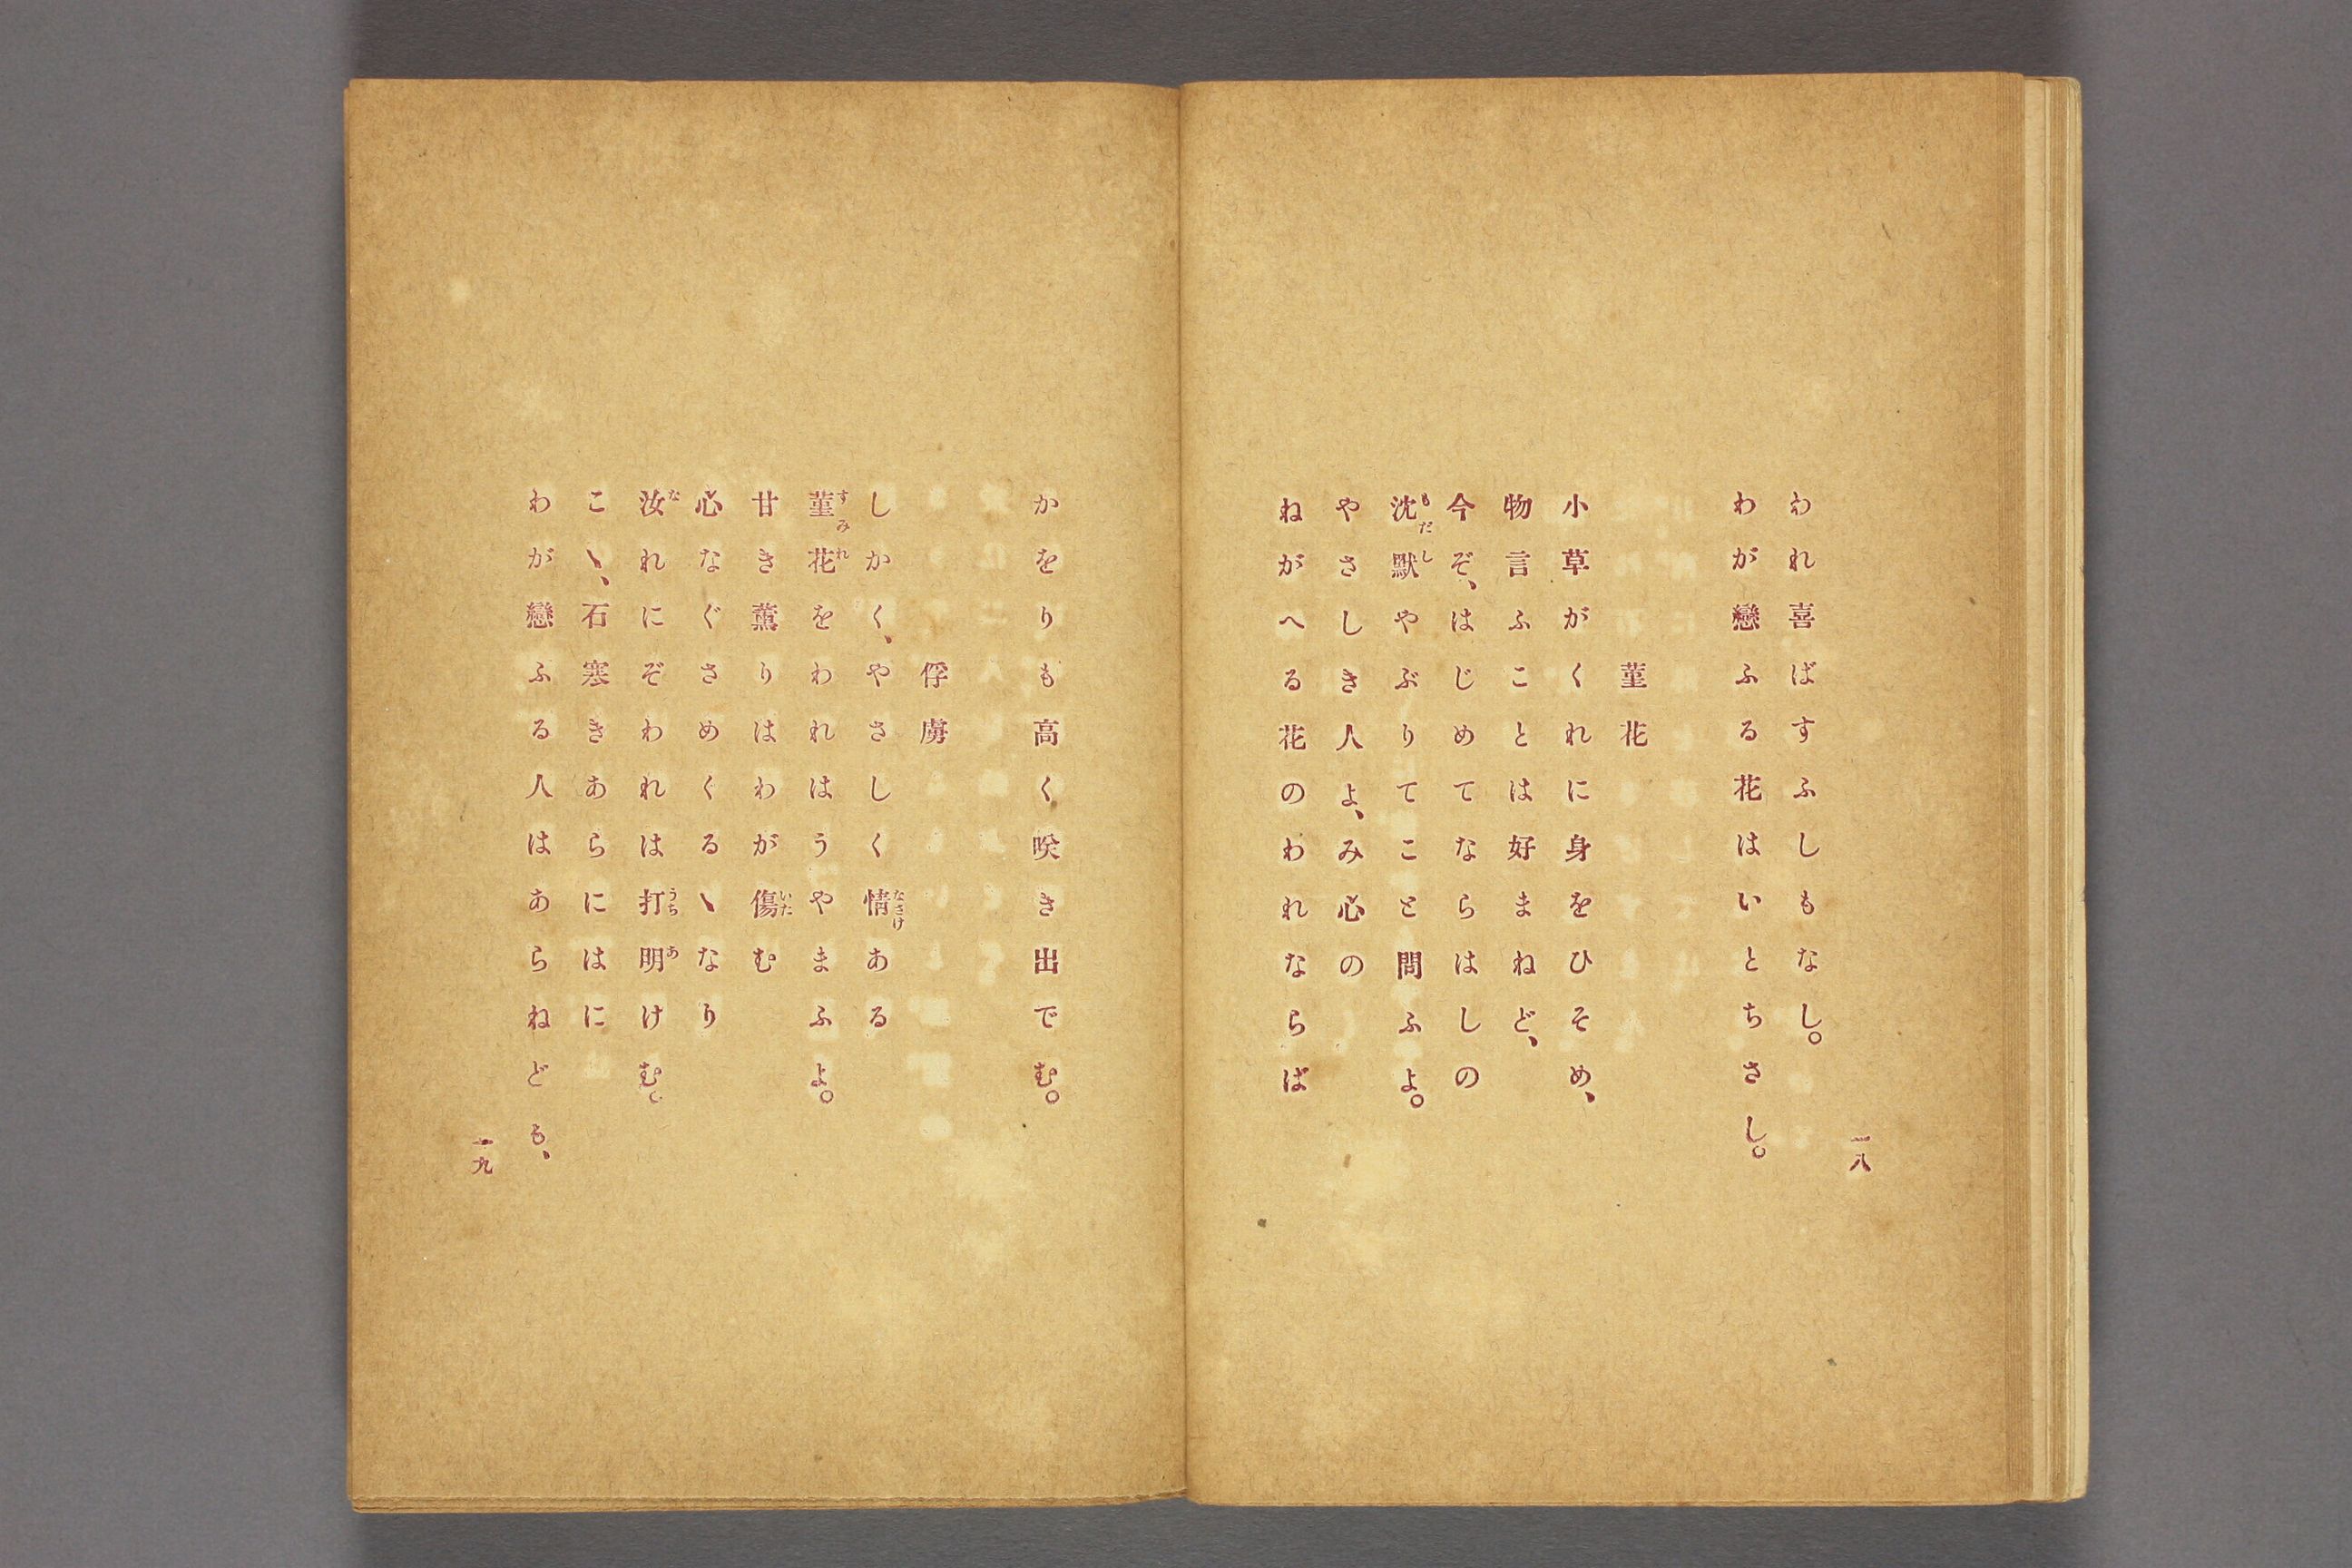 一八
われ喜ばすふしもなし。
わが戀ふる花はいとちさし。
菫花
小草がくれに身をひそめ、
物言ふことは好まねど、
今ぞ、はじめてならはしの
沈默やぶりてこと問ふよ。
やさしき人よ、み心の
ねがへる花のわれならば
かをりも高く咲き出でむ。
俘虜
しかく、やさしく情ある
菫花をわれはうやまふよ。
甘き薫りはわが傷む
心なぐさめぐるゝなり
汝れにぞわれは打明けむ。
こゝ、石寒きあらにはに
わが戀ふる人はあらねども、
一九